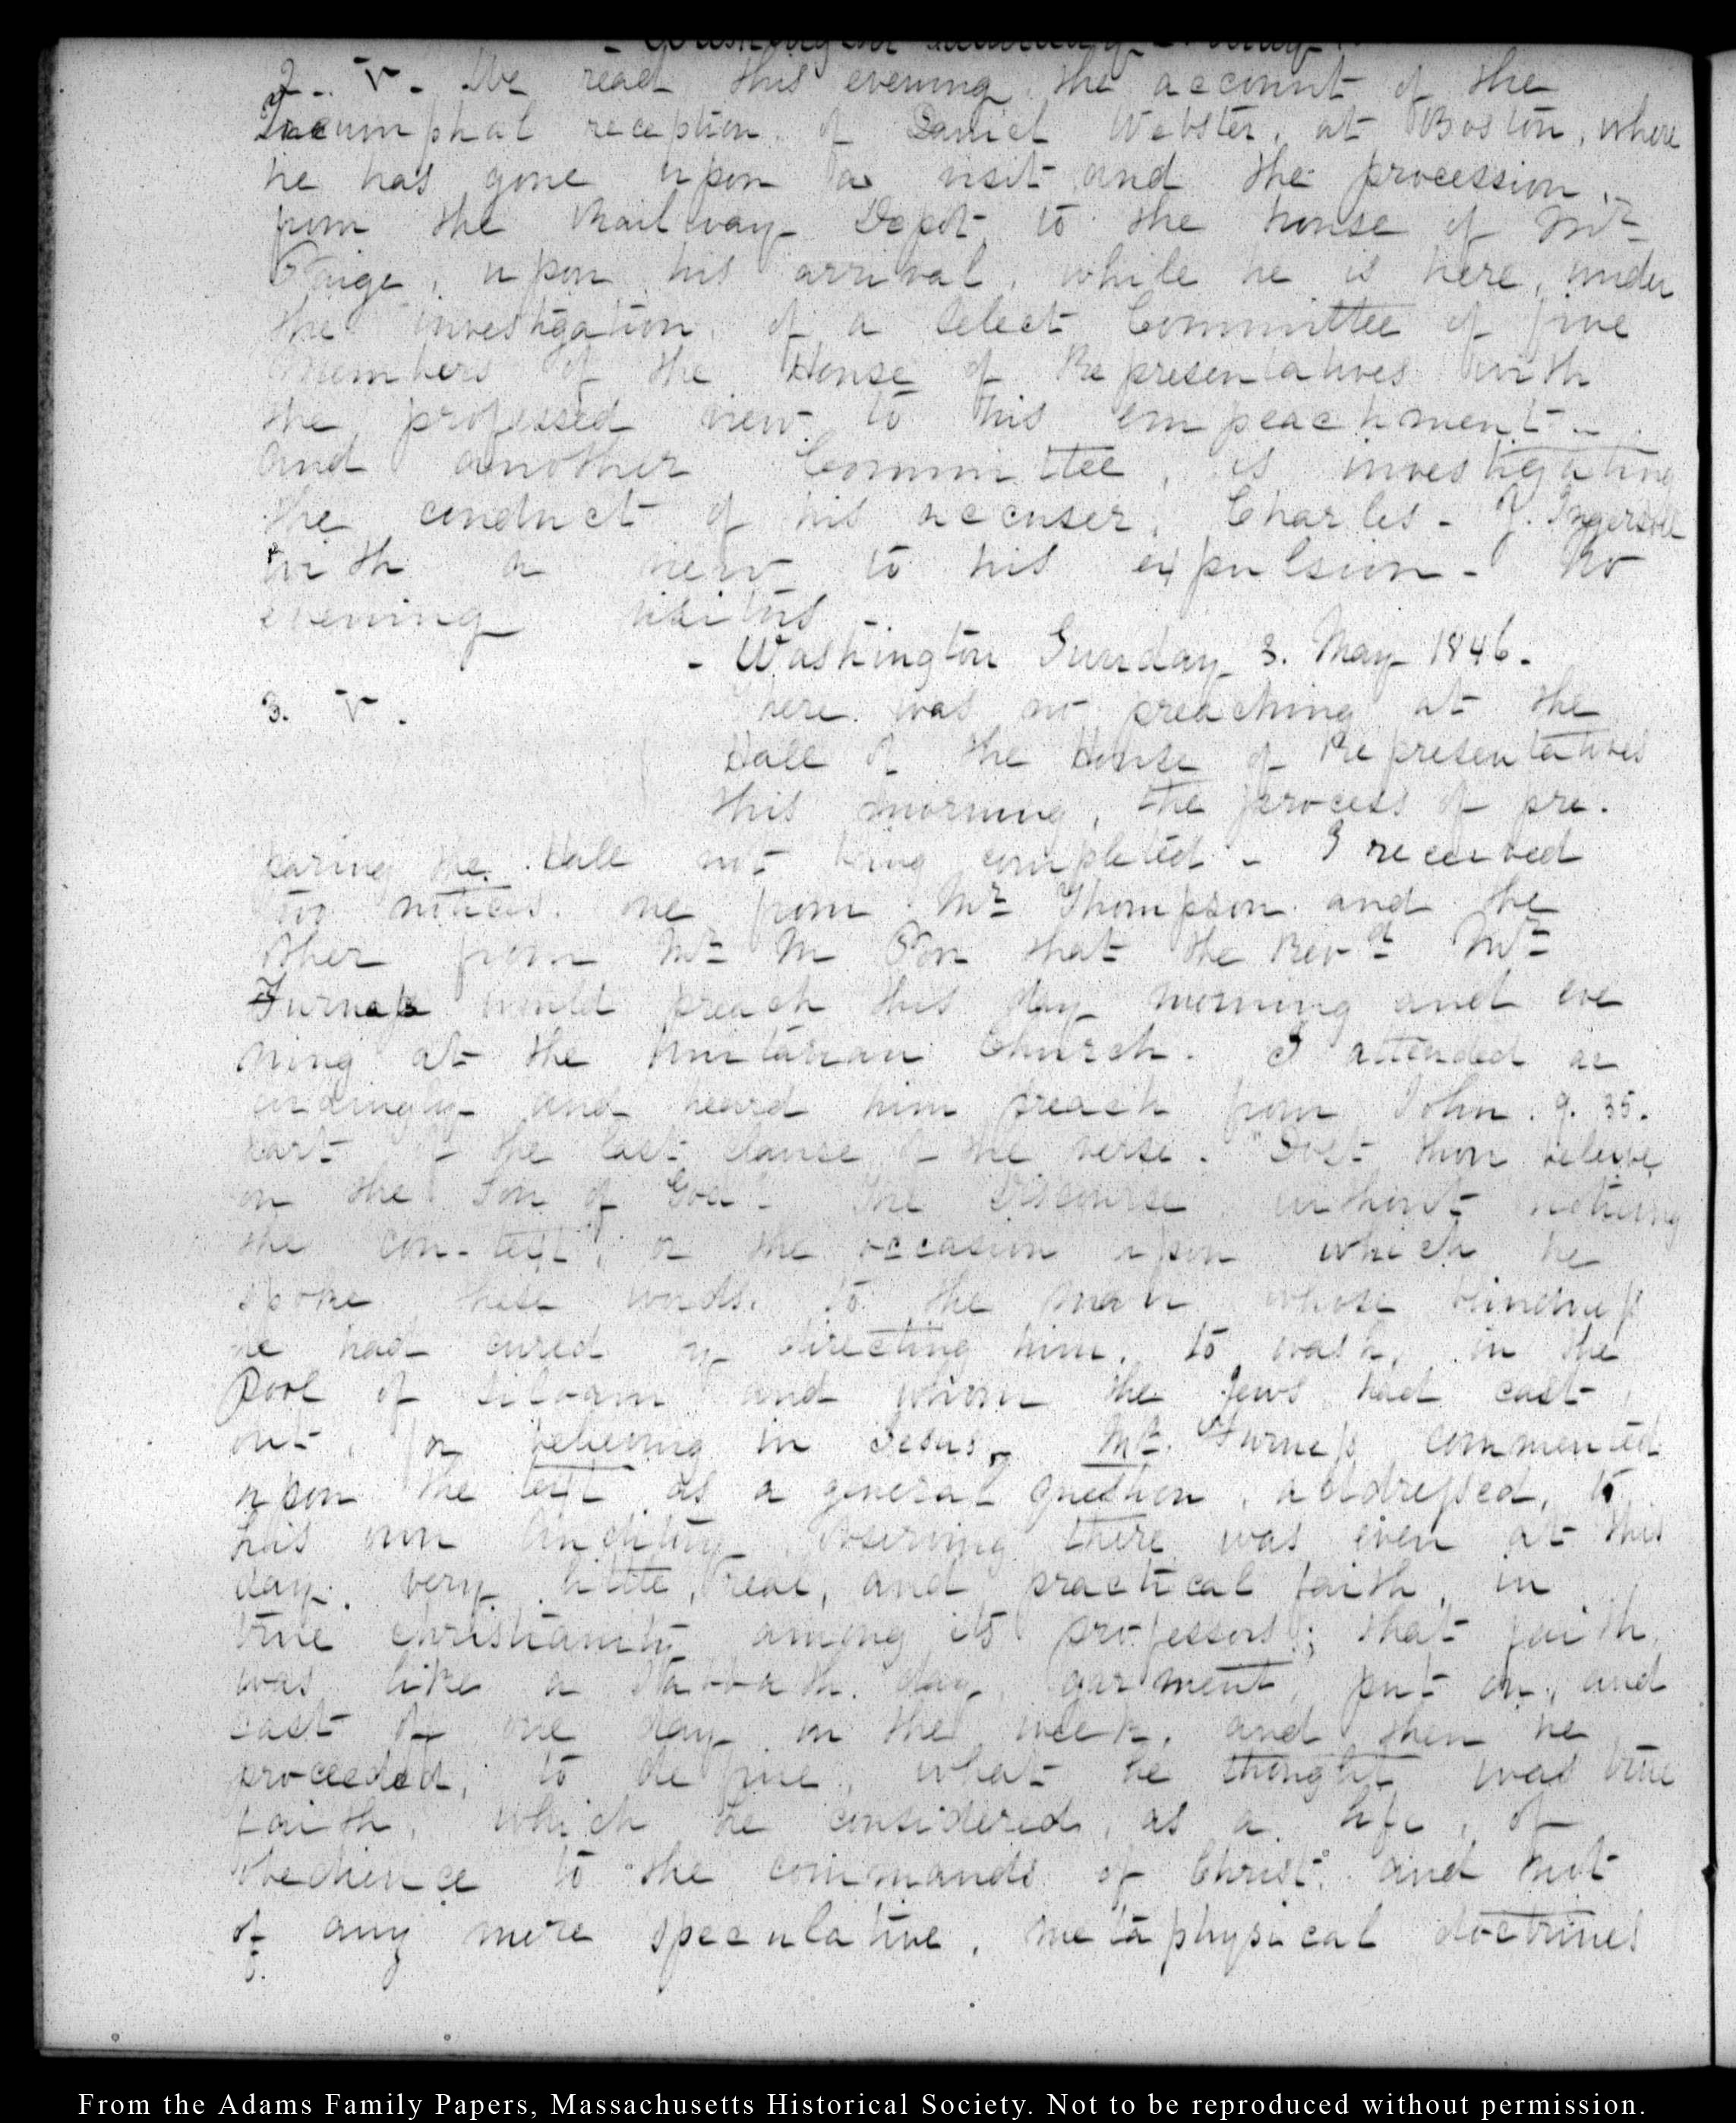 2. V. We read this evening the account of the
Triumphal reception of Daniel Webster, at Boston, where
he has gone upon a visit and the procession
from the Railway Depot to the house of Mr
Paige, upon his arrival, while he is here, under
the investigation of a Select Committee of five
Members of the House of Representatives with
the professed view to his empeachment -
and another Committee, is investigating
the conduct of his accuser, Charles - J. Ingersoll
with a view to his expulsion - No
evening visitors -
- Washington Sunday 3. May 1846.
3. V.
There was no preaching at the
Hall of the House of Representatives
this morning, the process of pre-
paring the Hall not being completed - I received
two notices. one from Mr Thompson and the
other from Mr M Orr that the Revd Mr
Furness would preach this day morning and eve
ning at the Unitarian Church. I attended ac
cordingly and heard him preach from John. 9. 35.
part of the last clause of the verse. "Dost thou believe
on the Son of God - The Discourse without noticing
the con-text, or the occasion upon which he
spoke these words. to the man whose blindness
he had cured by directing him, to wash, in the
Pool of Siloam and whom the Jews had cast
out, for believing in Jesus - Mr. Furness commented
upon the text as a general question, addressed, to
his own auditory observing there was even at this
day. very little, real, and practical faith, in
true christianity among its professors; that faith
was like a Sabbath day garment, put on, and
cast off one day in the week, and then he
proceeded, to define, what he thought was true
faith, which he considered, as a life, of
obedience to the commands of Christ. and not
of any mere speculative, metaphysical doctrines
From the Adams Family Papers, Massachusetts Historical Society. Not to be reproduced without permission.